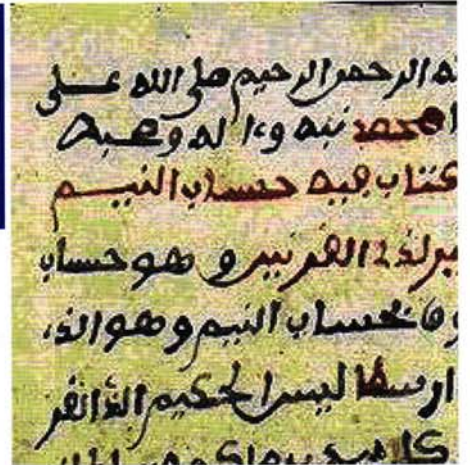 الرحمن الرحيم صلى الله على
محمد نبيه وءاله وصحبه
كتاب فيه حساب النيم
لذي القرنين وهو حساب
بحساب النيم وهو الذي
ارسطاليس الحكيم